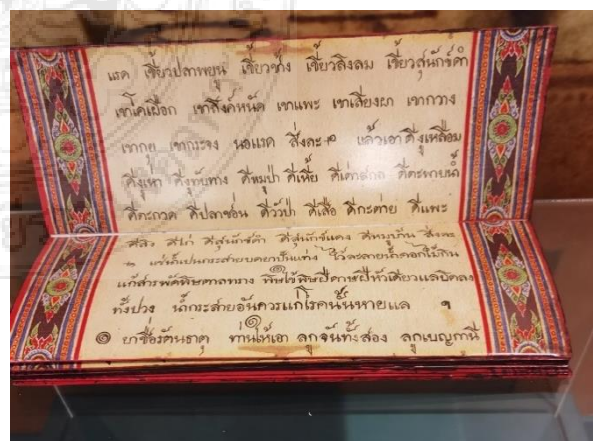 แรด เขี้ยวปลาพยูน เขี้ยวช้าง เขี้ยวลิงลม เขี้ยวสุนักข์ดำ
เขาโคเผือก เขาสิงค์หนัด เขาแพะ เขาเลียงผา เขากวาง
เขากูย เขากระจง นอแรด สิ่งละ ๑ แล้วเอา ดีงูเหลือม
ดีงูเห่า ดีงูทับทาง ดีหมูป่า ดีเหี้ย ดีเต่าสกล ดีตะพาบน้ำ
ดีตะกวด ดีปลาช่อน ดีวัวป่า ดีเสือ ดีกะต่าย ดีแพะ
ดีไก่ ดีสุนักข์ดำ ดีสุนักข์แดง ดีหมูเถื่อน สิ่งละ
๑ แช่น้ำเปนกระสายบดยาปั้นแท่ง ไว้ละลายน้ำดอกไม้กิน
แก้สารพัดพิษตาลทราง พิษไข้พิษฝีดาษฝีหัวเดียวแลบิดลง
ทั้งปวง น้ำกระสายอันควรแก่โรคนั้นหายแล ๑
๏ ยาชื่อรัตนธาตุ ท่านให้เอา ลูกจันทั้งสอง ลูกเบญกานี